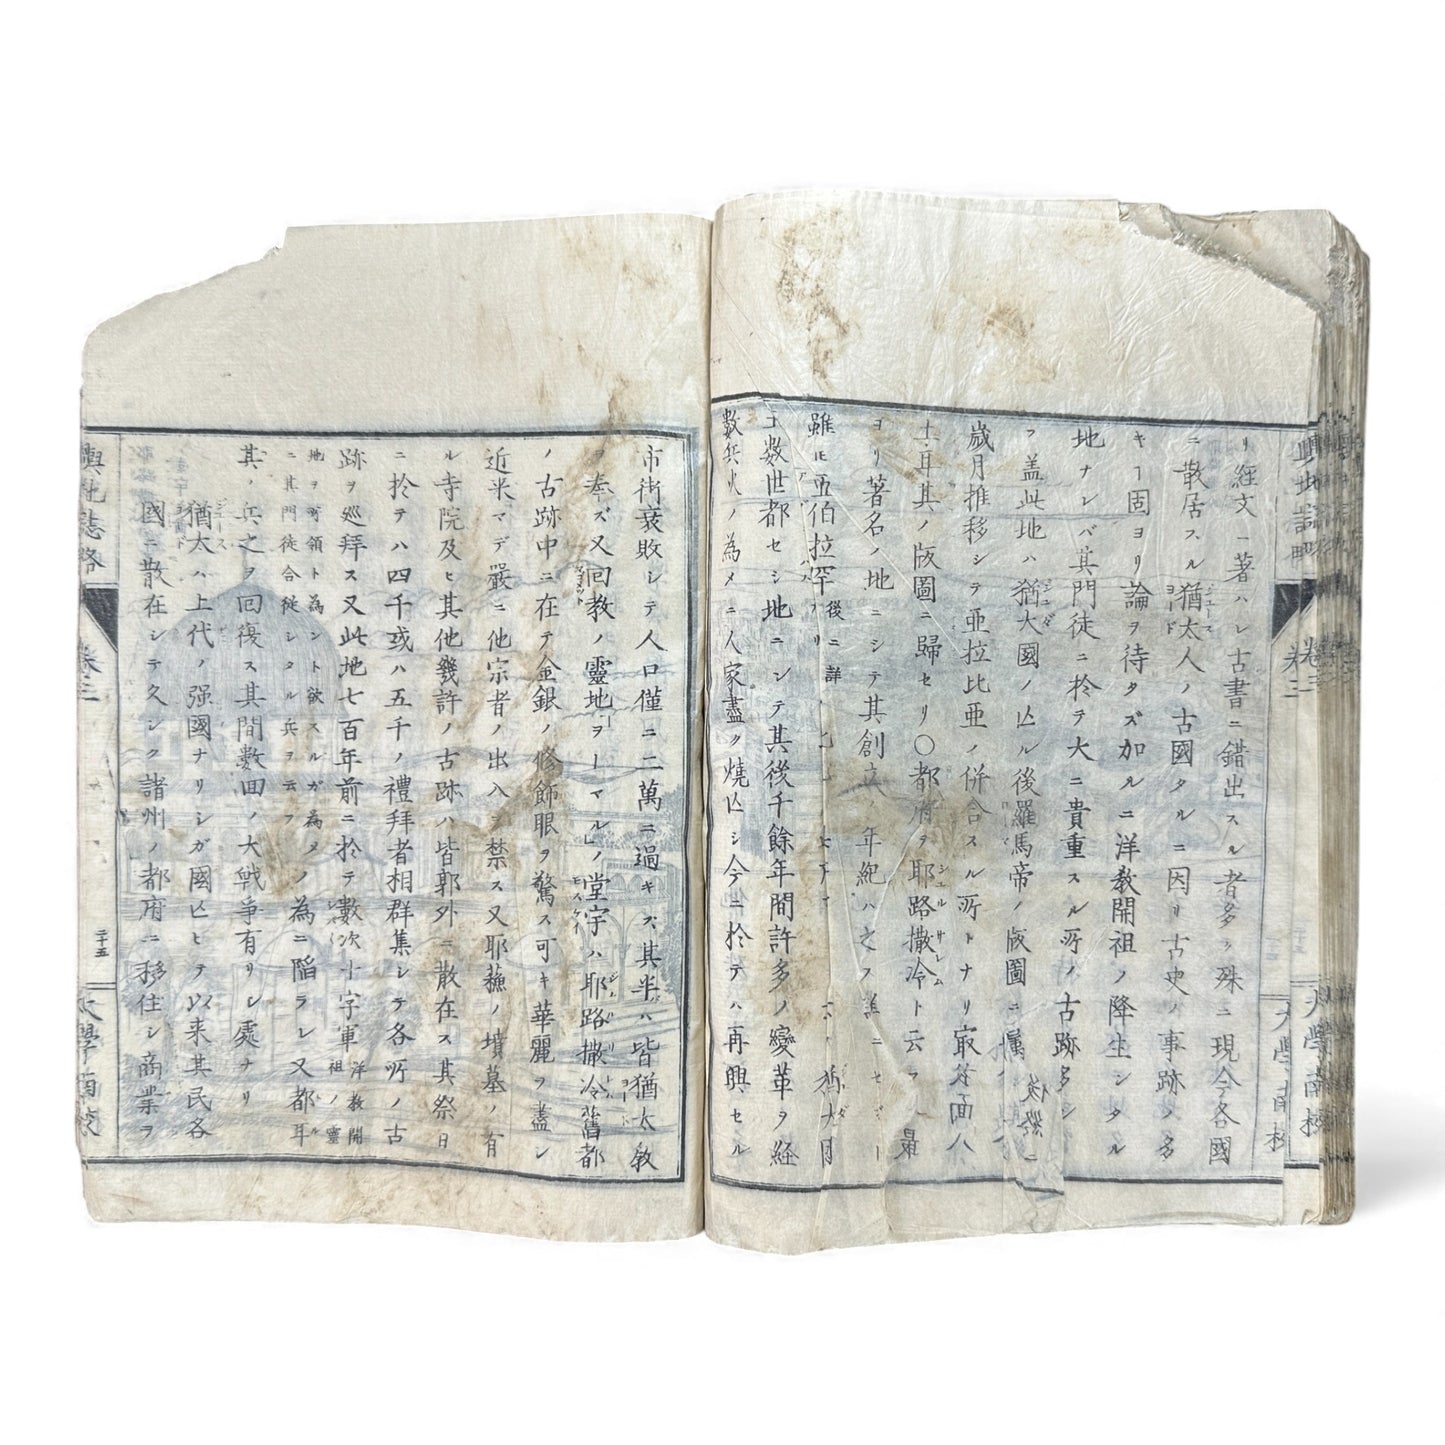 輿地誌略
卷三
大學南校
リ經文ニ著ハレ古書ニ錯出スル者多ク殊ニ現今各國
ニ散居スル猶太人ノ古國タルニ因リ古史ノ事跡ノ多
キヿ固ヨリ論ヲ待タズ加ルニ洋教開祖ノ降生シタル
地ナレバ其門徒ニ於テ大ニ貴重スル所ノ古跡多シ
フ盖此地ハ猶大國ノ亾ル後羅馬帝ノ版圖ニ属
歳月推移シテ亜拉比亜ノ併合スル所トナリ㝡後
土耳其ノ版圖ニ歸セリ〇都府ヲ耶路撒冷ト云ラ 最
ヨリ著名ノ地ニシテ其創立ノ年紀ハ之ヲ詳ニセザ
雖ヒ亞伯拉罕 後ニ詳 猶大
王数世都セシ地ニシテ其後千餘年間許多ノ變革ヲ經
數兵火ノ為メニ人家盡ク燒亾シ今ニ於テハ再興セル
市街衰敗シテ人口僅ニ二萬ニ過キズ其半ハ皆猶太教
ヲ奉ズ又回教ノ靈地ヲーマル」ノ堂宇ハ耶路撒冷舊都
ノ古跡中ニ在テ金銀ノ修飾眼ヲ驚ス可キ華麗ヲ盡シ
近来マデ嚴ニ他宗者ノ出入ヲ禁ス又耶蘓ノ墳墓ノ有
ル寺院及ヒ其他幾許ノ古跡ハ皆郭外ニ散在ス其祭日
ニ於テハ四千或ハ五千ノ禮拜者相群集シテ各所ノ古
跡ヲ巡拜ス又此地七百年前ニ於テ數次十字軍 洋教開祖ノ靈
地ヲ可領ト為ント欲スルガ為メノ
ニ其門徒合従シタル兵ヲ云フ 為ニ陷ラレ又都耳
其ノ兵之ヲ回復ス其間數回ノ大戦争有リシ處ナリ
猶大ハ上代ノ强國ナリシガ國亾ヒテ以来其民各
國ニ散在シテ久シク諸州ノ都府ニ移住シ商業ヲ
輿地誌略
卷三
二十五
大學南校